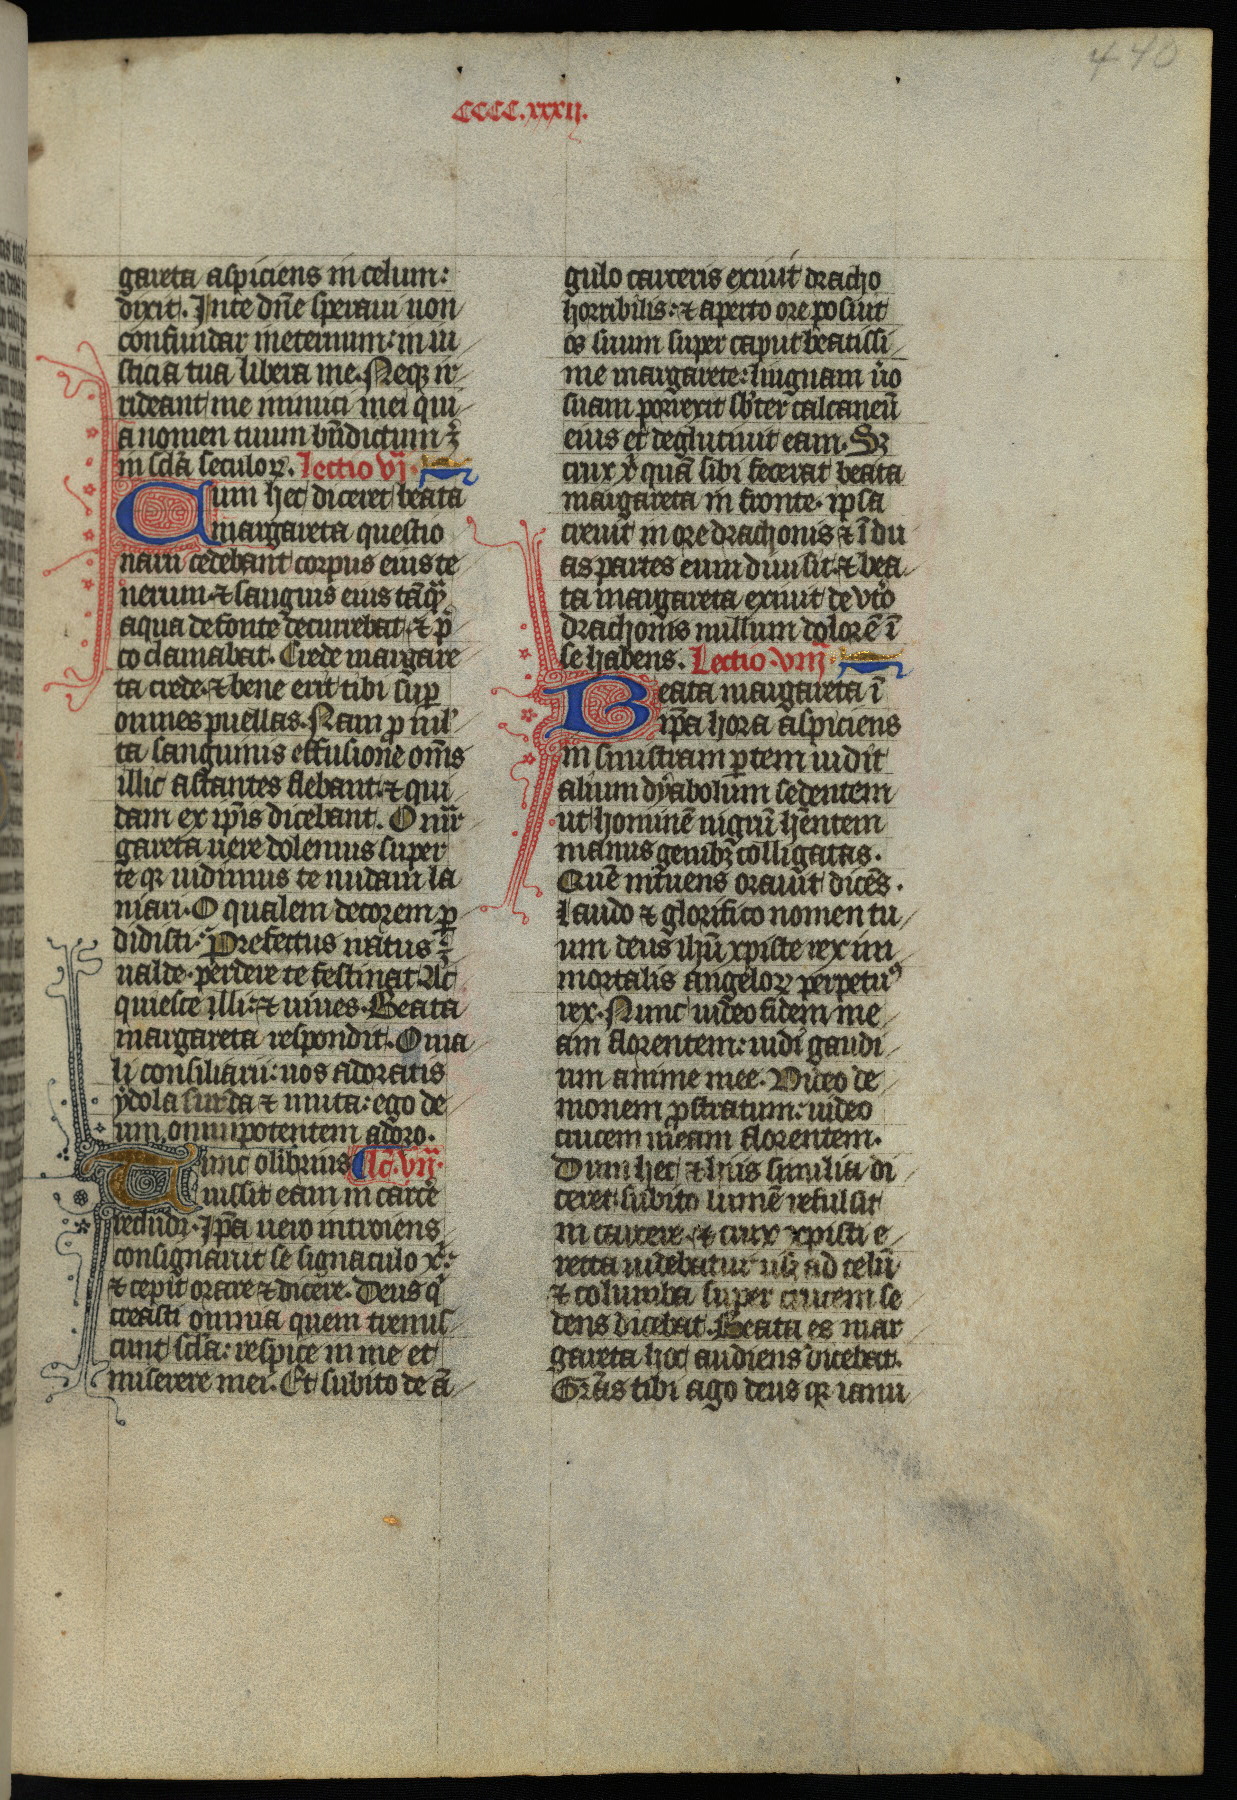 440
CCCC.xxxii.
gareta aspiciens in celum:
dixit. In te dn̄e speraui non
confundar in eternum: in iu
sticia tua libera me. Neq3 ir
rideant me inimici mei qui
a nomen tuum bn̄dictum ē
in scl̄a seculoꝝ. Lectio vj.
Cum hec diceret beata
margareta questio
narii cedebant corpus eius te
nerum ⁊ sanguis eius tāq̄
aqua de fonte decurrebat ⁊ p̄
co clamabat. Crede margare
ta crede ⁊ bene erit tibi suꝑ
omnes puellas. Nam p̱ml'
ta sanguinis effusione om̄s
illic astantes flebant: ⁊ qui
dam ex ip̄is dicebant. O mar
gareta uere dolemus super
te qꝛ uidimus te nudam la
niari. O qualem decorem ꝑ
didisti. Prefectus iratus ē
ualde perdere te festinat. Ac
quiesce illi: ⁊ uiues. Beata
margareta respondit. O ma
li consiliarii: uos adoratis
ydola surda ⁊ muta: ego de
um omnipotentem adoro.
Tunc olibrius Lc̄. vij.
iussit eam in carcēr
recludi. Ip̄a uero introiens
consignauit se signaculo xp̄i:
⁊ cepit orare ⁊ dicere. Deus q̇
creasti omnia quem tremis
cunt scl̄a: respice in me et
miserere mei. Et subito de ā
gulo carceris exiuit dracho
horribilis: ⁊ aperto ore posuit
os suum super caput beatissi
me margarete: linguam u̇o
suam porrexit sb̓ter calcaneū
eius et deglutiuit eam. Sꝫ
crux x̄p̄i quā sibi fecerat beata
margareta in fronte ipsa
creuit in ore drachonis ⁊ ī du
as partes eum diuisit ⁊ bea
ta margareta exiuit de vt̓o
drachonis nullum dolorē ī
se habens. Lectio viij.
Beata margareta ī
ip̄a hora aspiciens
in sinistram ꝑtem uidit
alium dyabolum sedentem
ut hominē nigrū hn̄tem
manus genibꝫ colligatas.
Quē intuens orauit dicēs.
Laudo ⁊ glorifico nomen tu
um deus ihū xpiste rex im
mortalis angeloꝝ perpetuꝰ
rex. Nunc uideo fidem me
am florentem: uidi gaudi
um anime mee. Video de
monem p̱stratum: uideo
crucem meam florentem.
Dum hec ⁊ hiis similia di
ceret subito lumē refulsit
in carcere ⁊ crux xpisti e
recta uidebatur usq̄ ad celū
⁊ columba super crucem se
dens dicebat. Beata es mar
gareta hoc audiens dicebat.
Grās tibi ago deus qꝛ ianu